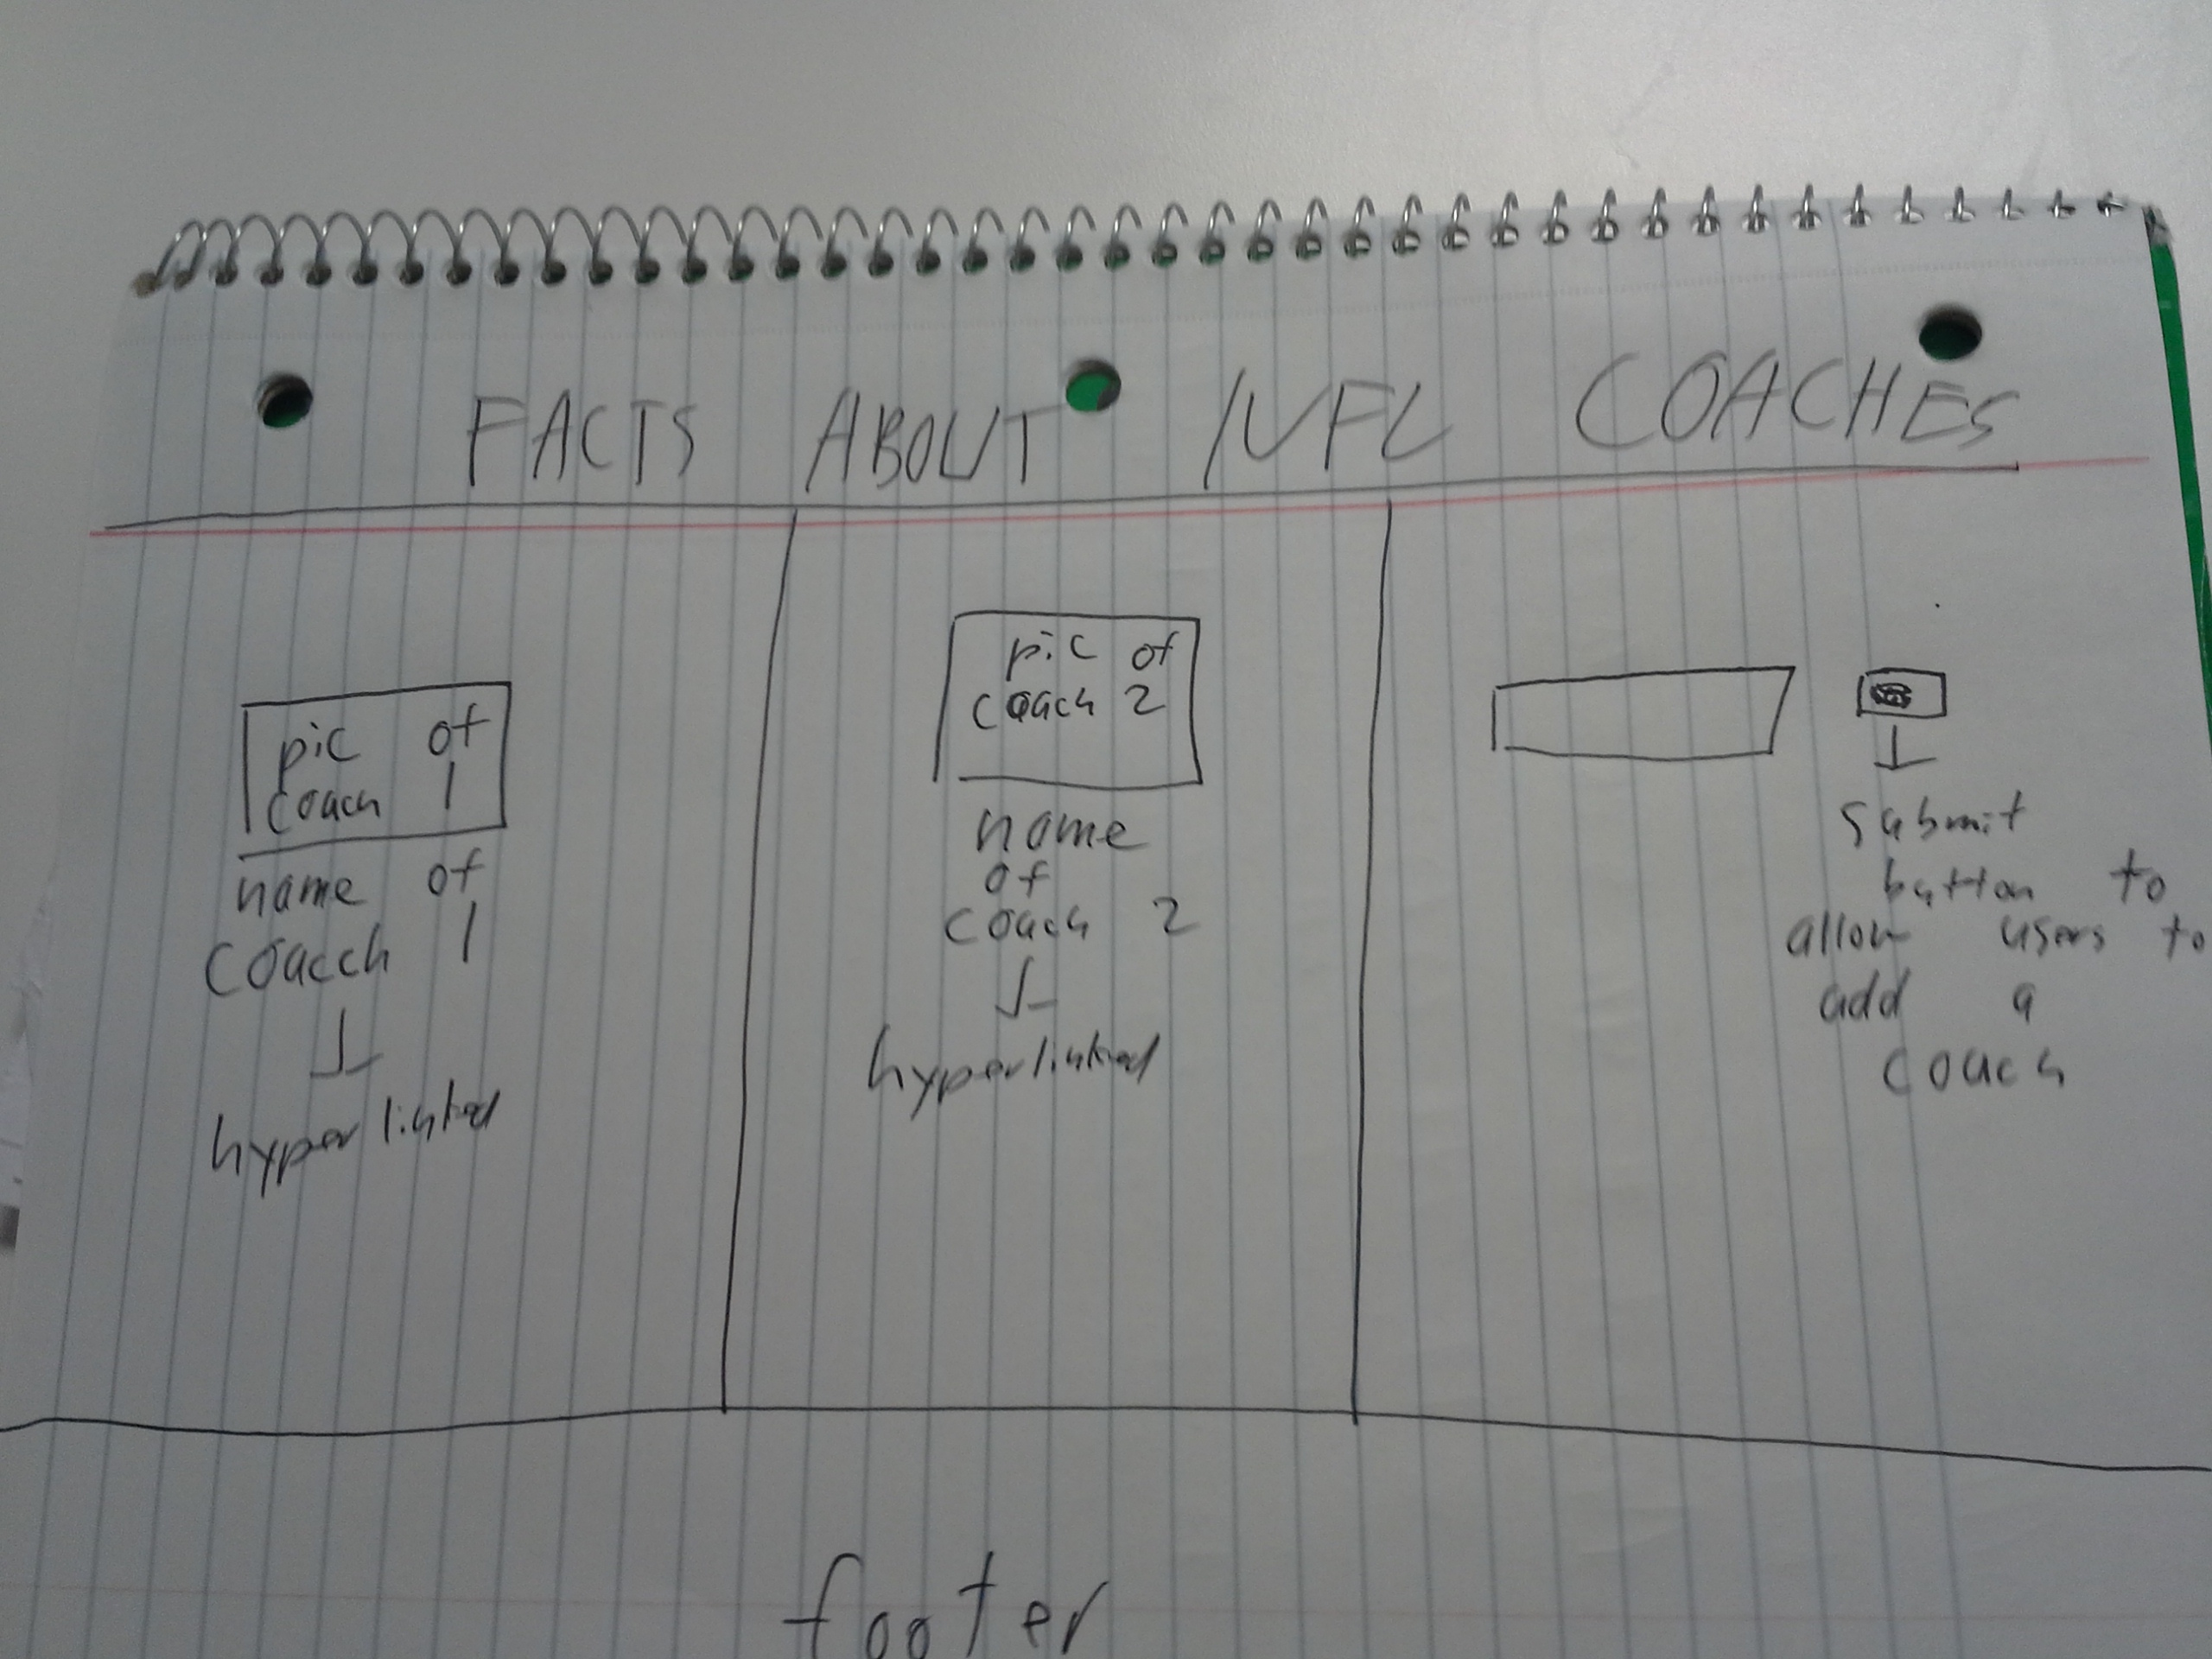 FACTS ABOUT NFL COACHES
pic of
coach 1
name of
coacch 1
hyperlinked
pic of
coach 2
name
of
coach 2
hyperlinked
submit
button to
allow users to
add a
coach
footer